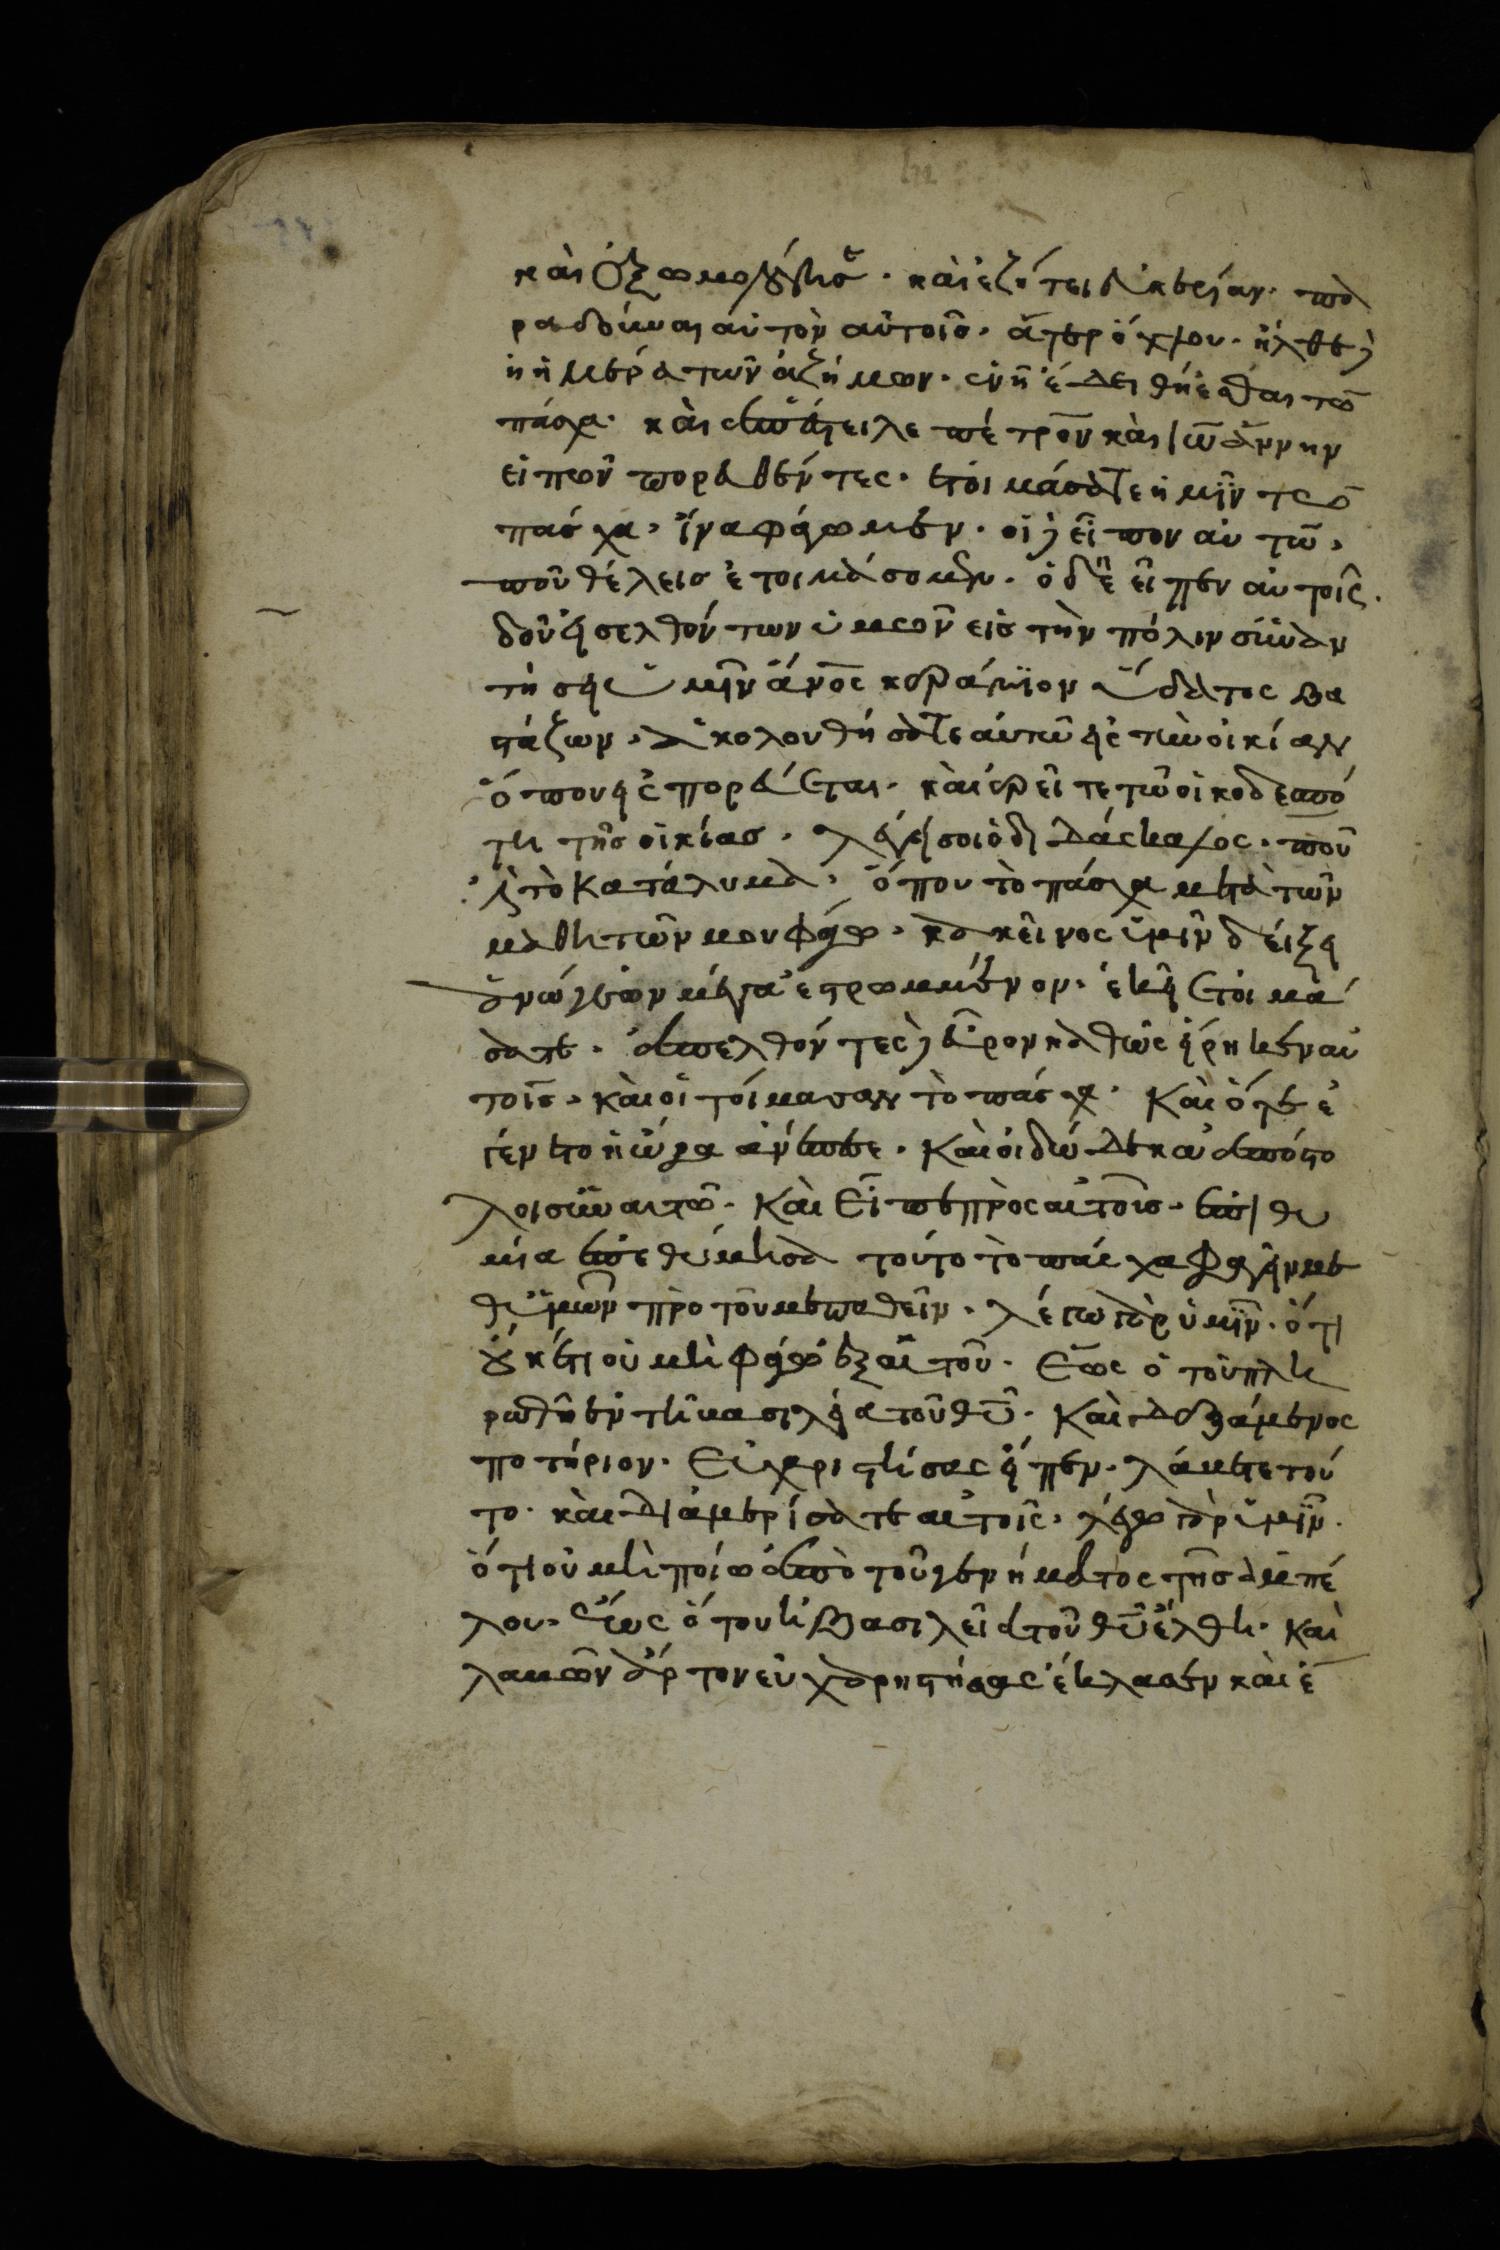 καὶ ἐξωμολόγησε· καὶ ἐζήτει εὐκερίαν· πα
ραδοῦναι αὐτὸν αὐτοῖς· ἄτερ ὄχλου· ἦλθε δὲ
ἡ ἡμέρα τῶν ἀζήμων· ἐν ἧ ἔδει θήεσθαι τὸ
πάσχα· καὶ ἀπέστειλε πέτρον καὶ ἰωάννην
εἰπῶν πορευθέντες· ἑτοιμάσατε ἡμῖν τὸ
πάσχα· ἵνα φάγωμεν· οἱ δὲ εἶπον αὐτῶ·
ποῦ θέλεις ἑτοιμάσομεν· ὁ δὲ εἶπεν αὐτοῖς·
δοῦ εἰσελθόντων ὑμῶν εἰς τὴν πόλιν συναν
τήσει ὑμῖν ἄνος κεράμιον ὕδατος βα
στάζων· ἀκολουθήσατε αὐτῶ εἰς τὴν οἰκίαν
ὅπου εἰσπορεύεται· καὶ ἐρεῖτε τῶ οἰκοδεσπό
τη τῆς οἰκίας· λέγει σοι ὁ διδάσκαλος· ποῦ
ἐστὶ τὸ κατάλυμα· ὅπου τὸ πάσχα μετὰ τῶν
μαθητῶν μου φάγω· κακεῖνος ὑμῖν δείξει
ἀνώγεων μέγα ἐστρωμμένον· ἐκεῖ ἑτοιμά
σατε· ἀπελθόντες δὲ εὗρον καθὼς εἴρηκεν αὐ
τοῖς· καὶ οἱτοίμασαν τὸ πάσχα· Καὶ ὅτε ἐ
γένετο ἡ ὥρα ἀνέπεσε· Καὶ οἱ δώδεκα ἀπόστο
λοι σὺν αὐτῶ· Καὶ εἶπε πρὸς αὐτοῖς· ἐπιθυ
μία ἐπεθύμησα τοῦτο τὸ πάσχα φαγεῖν με
θ' ὑμῶν πρὸ τοῦ με παθεῖν· λέγω γὰρ ὑμῖν· ὅτι
οὐκέτι οὐ μὴ φάγω ἐξ αὐτοῦ· Ἕως ὅτου πλη
ρωθῆ ἐν τῆ βασιλεία τοῦ θυ· Καὶ δεξάμενος
ποτήριον· Εὐχαριστήσας εἶπεν· λάβετε τοῦ
το· καὶ διαμερίσατε αὐτοῖς· λέγω γὰρ ὑμῖν·
ὅτι οὐ μὴ ποίω ἀπὸ τοῦ γενήματος τῆς ἀμπέ
λου· Ἕως ὅτου ἡ βασιλεία τοῦ θυ ἔλθη· Καὶ
λαβὼν ἄρτον εὐχαρηστήσας ἔκλασεν καὶ ἔ